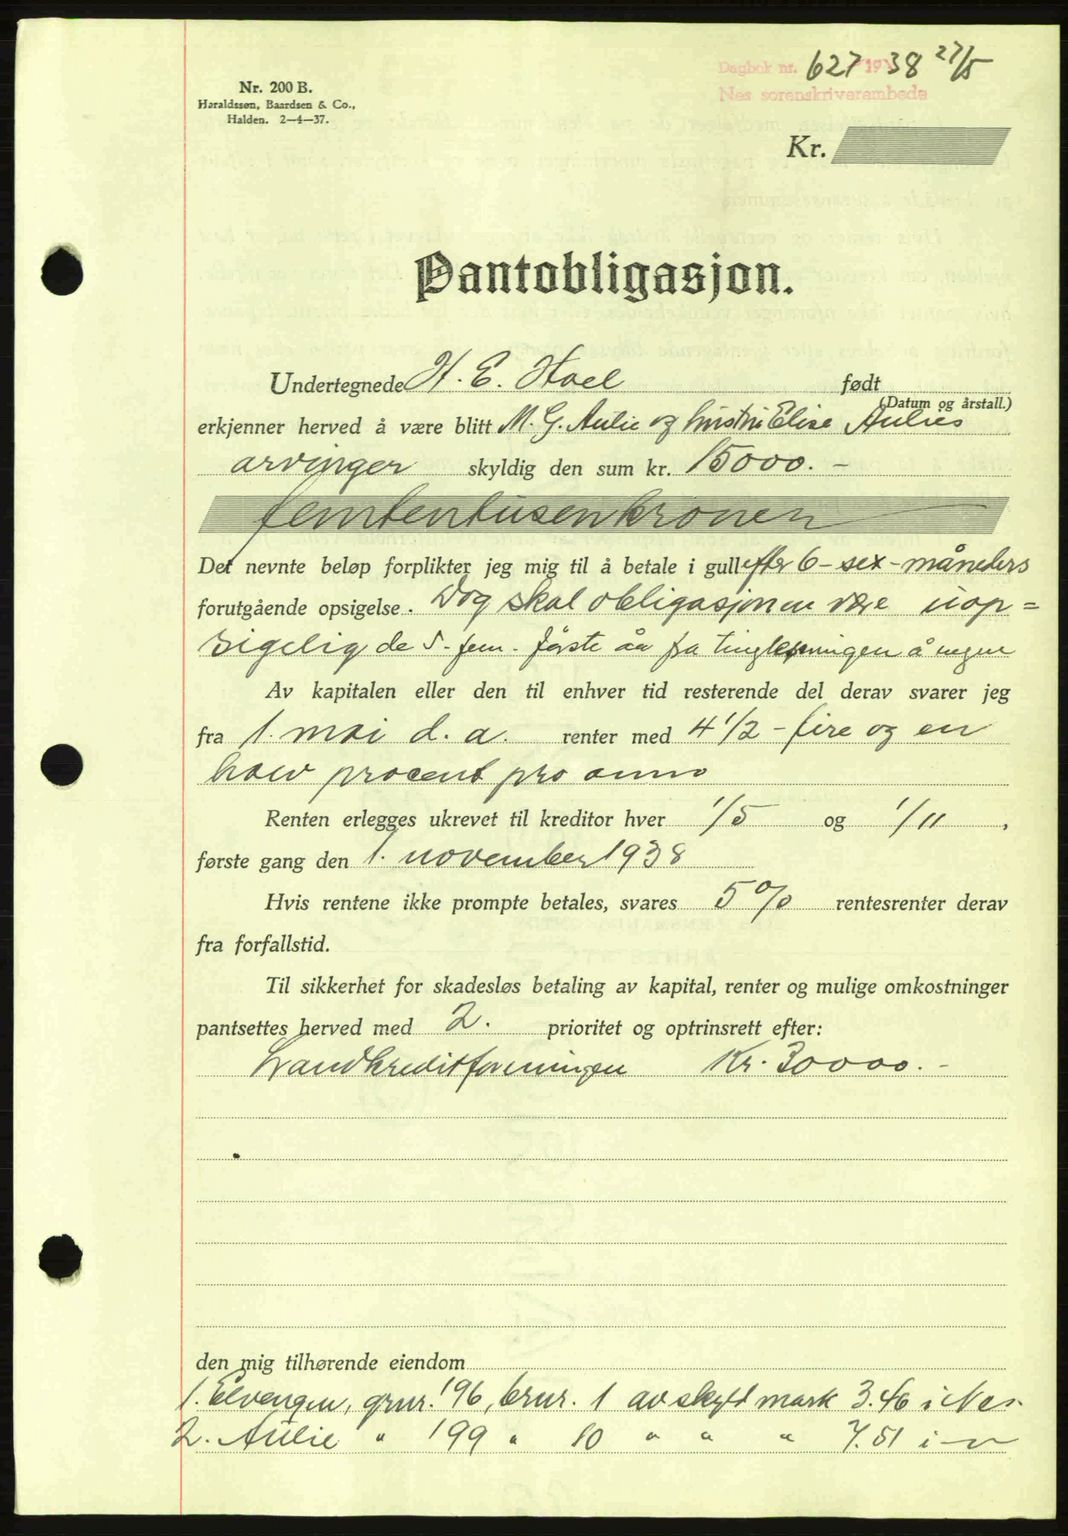 Dagbok nr. 627 19 38 27/5
Nes sorenskriverembede
Nr. 200 B.
Haraldssøn, Baardsen & Co.,
Halden. 2—4—37.
Kr.
Pantobligasjon.
Undertegnede H. E. Hoel født
(Datum og årstall.)
erkjenner herved å være blitt M. G. Aulie og hustru Elise Aulies
arvinger skyldig den sum kr. 15000. -
femtentusenkroner
Det nevnte beløp forplikter jeg mig til å betale i gull efter 6 - sex - måneders
forutgående opsigelse. Dog skal obligasjonen være uop=
sigelig de 5 - fem - første år fra tinglesningen å regne
Av kapitalen eller den til enhver tid resterende del derav svarer jeg
fra 1. mai d. a. renter med 4 1/2 - fire og en
halv procent pro anno
Renten erlegges ukrevet til kreditor hver 1/5 og 1/11 ,
første gang den 1. november 1938
Hvis rentene ikke prompte betales, svares 5 % rentesrenter derav
fra forfallstid.
Til sikkerhet for skadesløs betaling av kapital, renter og mulige omkostninger
pantsettes herved med 2. prioritet og optrinsrett efter:
Landkreditforeningen Kr. 30000. -
den mig tilhørende eiendom
1. Elvengen, grnr. 196, brnr. 1 av skyld mark 3.46 i Nes.
2. Aulie " 199 " 10 " " " 7.51 i -